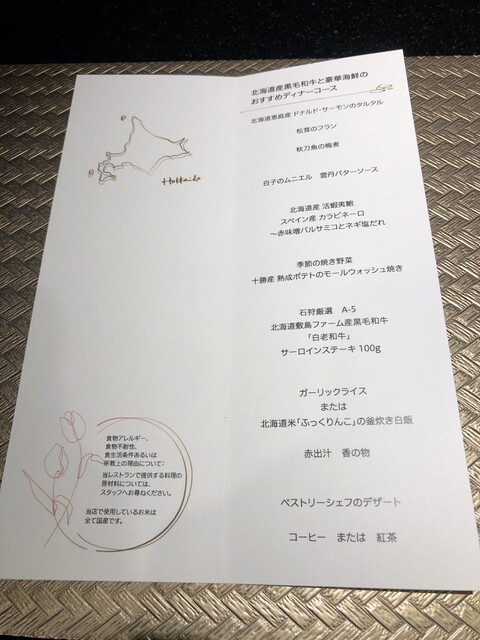 北海道産黒毛和牛と豪華海鮮の
おすすめディナーコース
北海道恵庭産 ドナルド・サーモンのタルタル
松茸のフラン
秋刀魚の梅煮
白子のムニエル 雲丹バターソース
北海道産 活蝦夷鮑
スペイン産 カラビネーロ
～赤味噌バルサミコとネギ塩だれ
季節の焼き野菜
十勝産 熟成ポテトのモールウォッシュ焼き
石狩厳選 A-5
北海道敷島ファーム産黒毛和牛
「白老和牛」
サーロインステーキ 100g
ガーリックライス
または
北海道米「ふっくりんこ」の釜炊き白飯
赤出汁 香の物
ペストリーシェフのデザート
コーヒー または 紅茶
Hokkaido
食物アレルギー、
食物不耐性、
食生活条件あるいは
宗教上の理由について：
当レストランで提供する料理の
原材料については、
スタッフへお尋ねください。
当店で使用しているお米は
全て国産です。